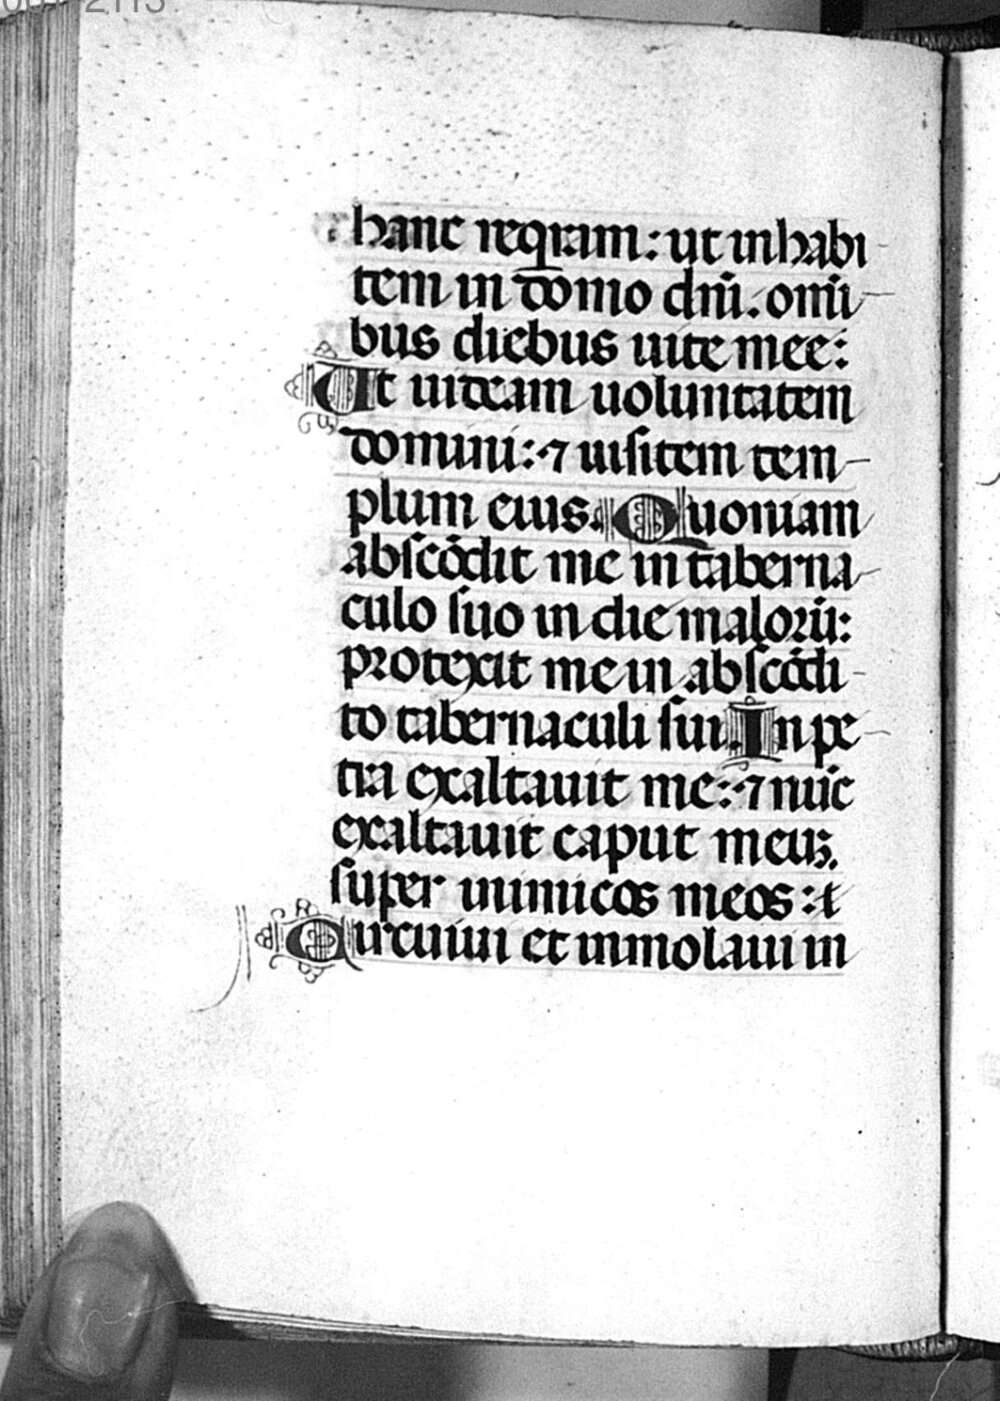 hanc reqram: ut inhabi
tem in domo dñi. omi
bus diebus uite mee:
Ut uideam uoluntatem
domini: ⁊ uisitem tem
plum eius. Quoniam
abscōdit me in taberna
culo suo in die malorū:
protexit me in abscōdi
to tabernaculi sui. In pe
tra exaltauit me: ⁊ nūc
exaltauit caput meuʒ.
super inimicos meos:
Circuiui et inmolaui in